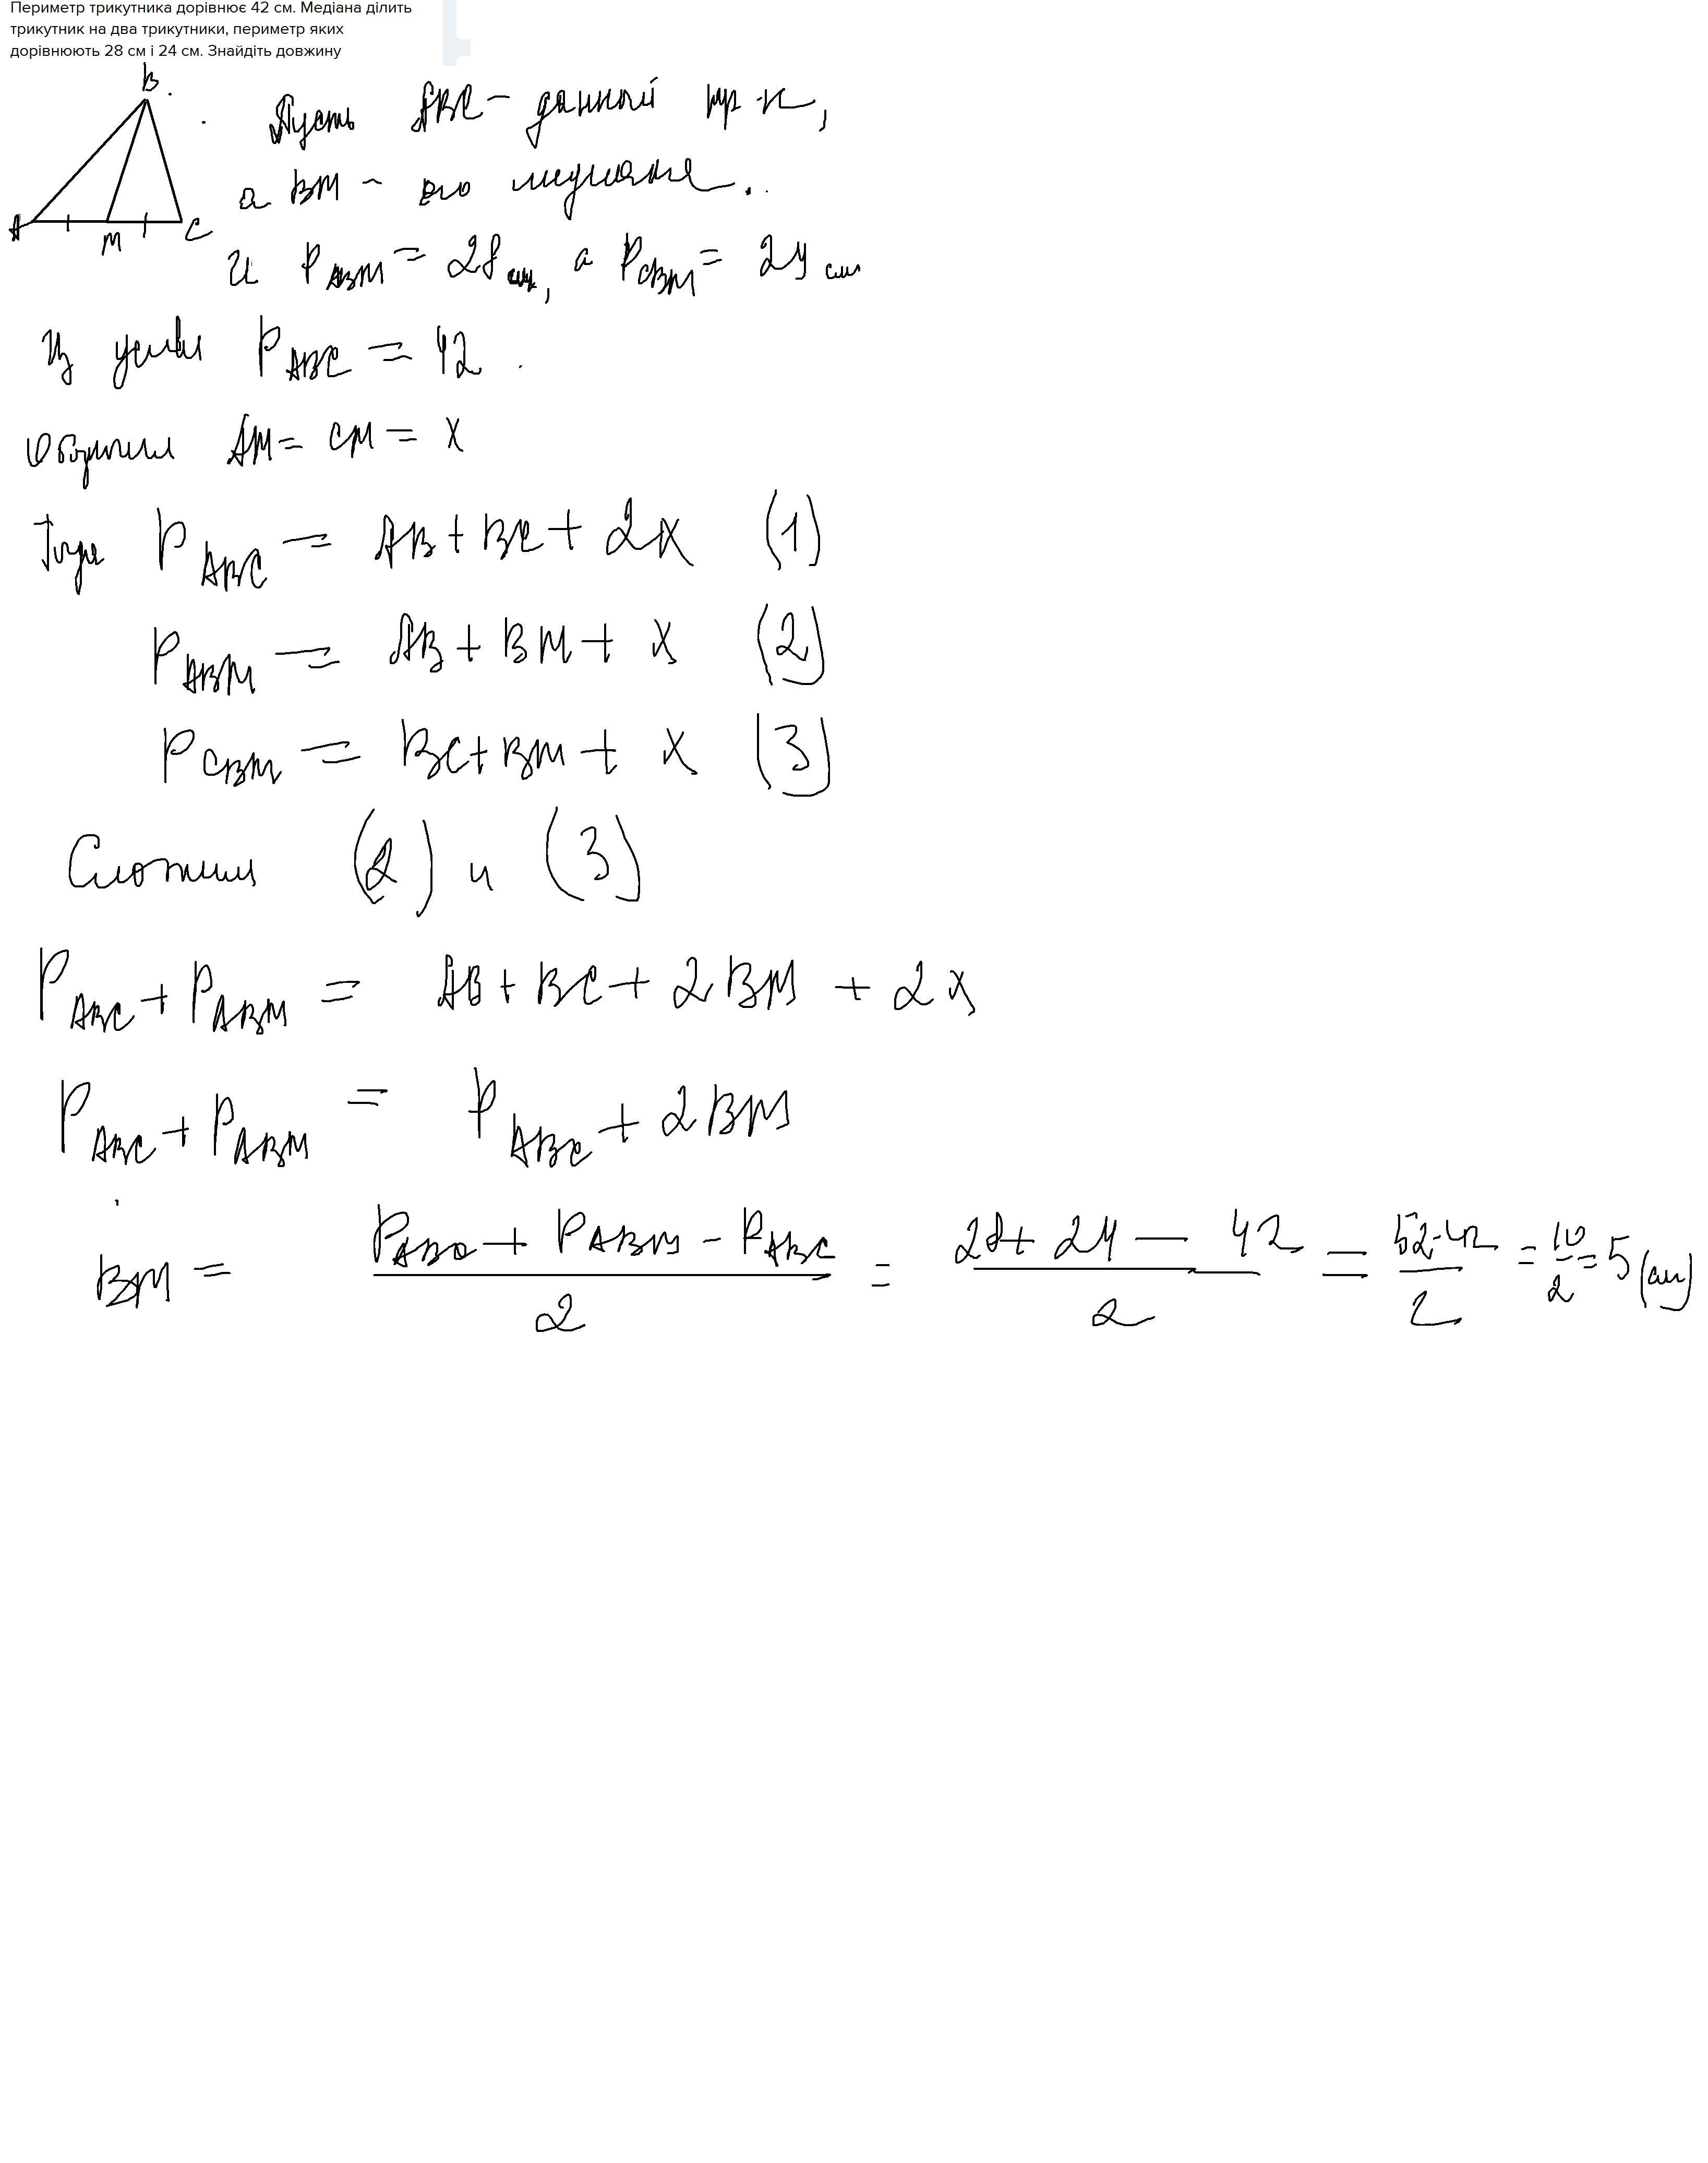 Периметр трикутника дорівнює 42 см. Медіана ділить
трикутник на два трикутники, периметр яких
дорівнюють 28 см і 24 см. Знайдіть довжину
B
A M C
Пусть ABC - данный тр-к,
а BM - его медиана.
и P ABM = 28 см, а P CBM = 24 см
Из услов P ABC = 42
Обозначим AM = CM = x
Тогда P ABC = AB + BC + 2x (1)
P ABM = AB + BM + x (2)
P CBM = BC + BM + x (3)
Сложим (2) и (3)
P ABC + P ABM = AB + BC + 2BM + 2x
P ABC + P ABM = P ABC + 2BM
BM = (P ABC + P ABM - P ABC)/2 = (28 + 24 - 42)/2 = (52-42)/2 = 10/2 = 5 (см)